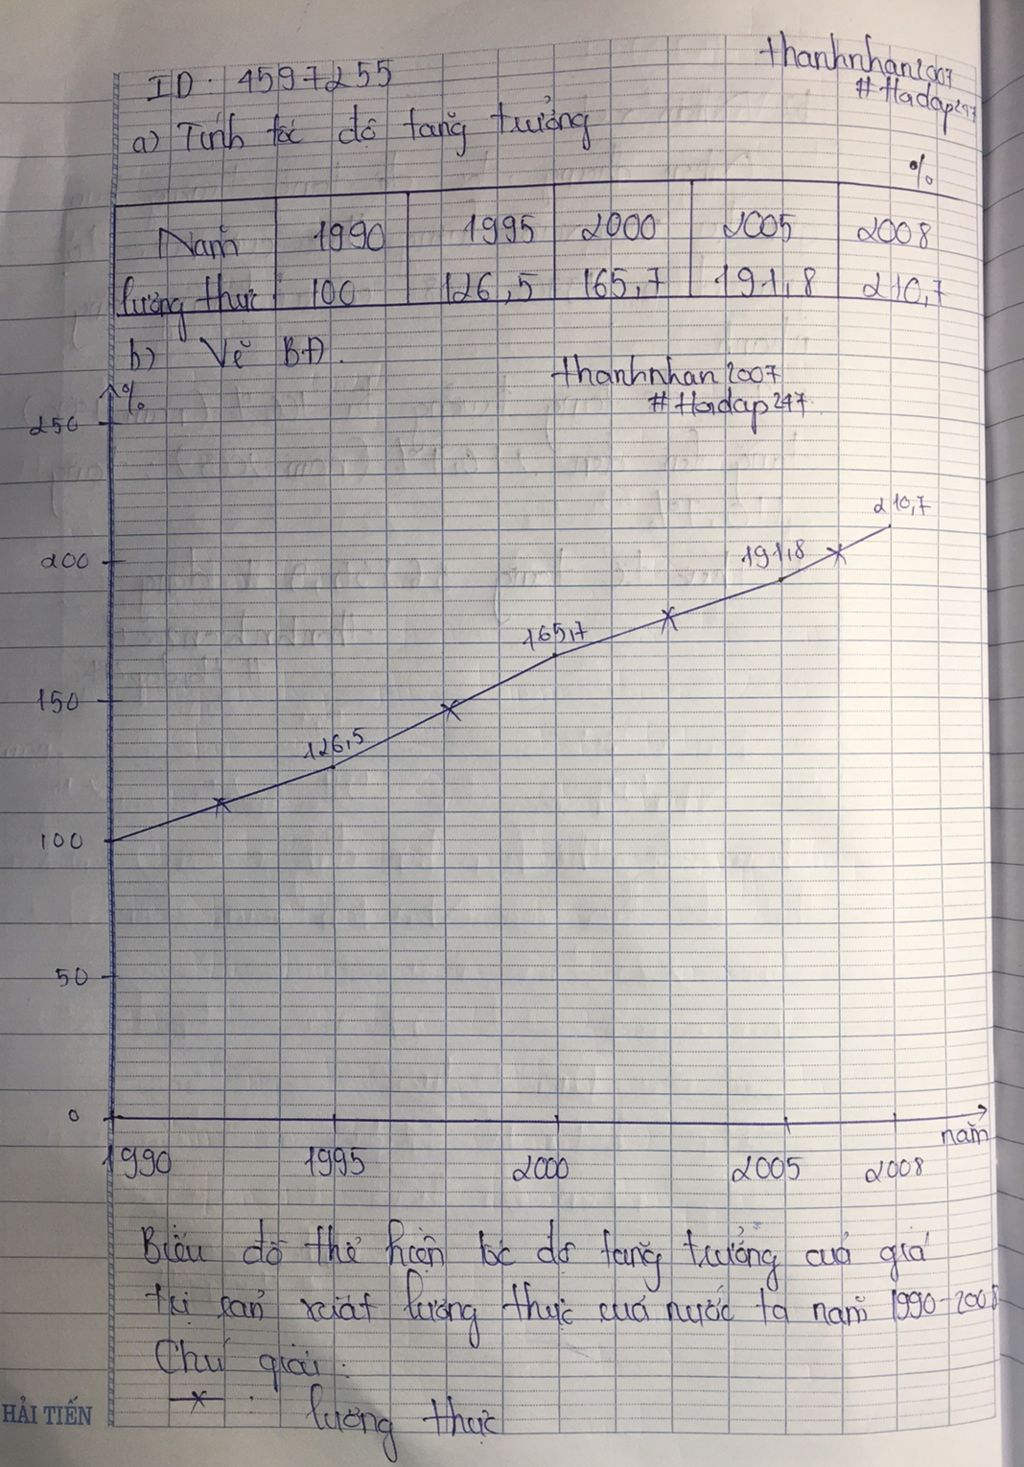 ID: 4597255
thanhnhan2007
#Hadap247
a) Tính tốc độ tăng trưởng
%
Năm 1990 1995 2000 2005 2008
lương thực 100 126,5 165,7 191,8 210,7
b) Vẽ BĐ.
thanhnhan2007
#Hadap247
%
250
210,7
200
191,8
165,7
150
126,5
100
50
0
năm
1990 1995 2000 2005 2008
Biểu đồ thể hiện tốc độ tăng trưởng của giá
trị sản xuất lương thực của nước ta năm 1990-2008
Chú giải:
: lương thực
HẢI TIẾN